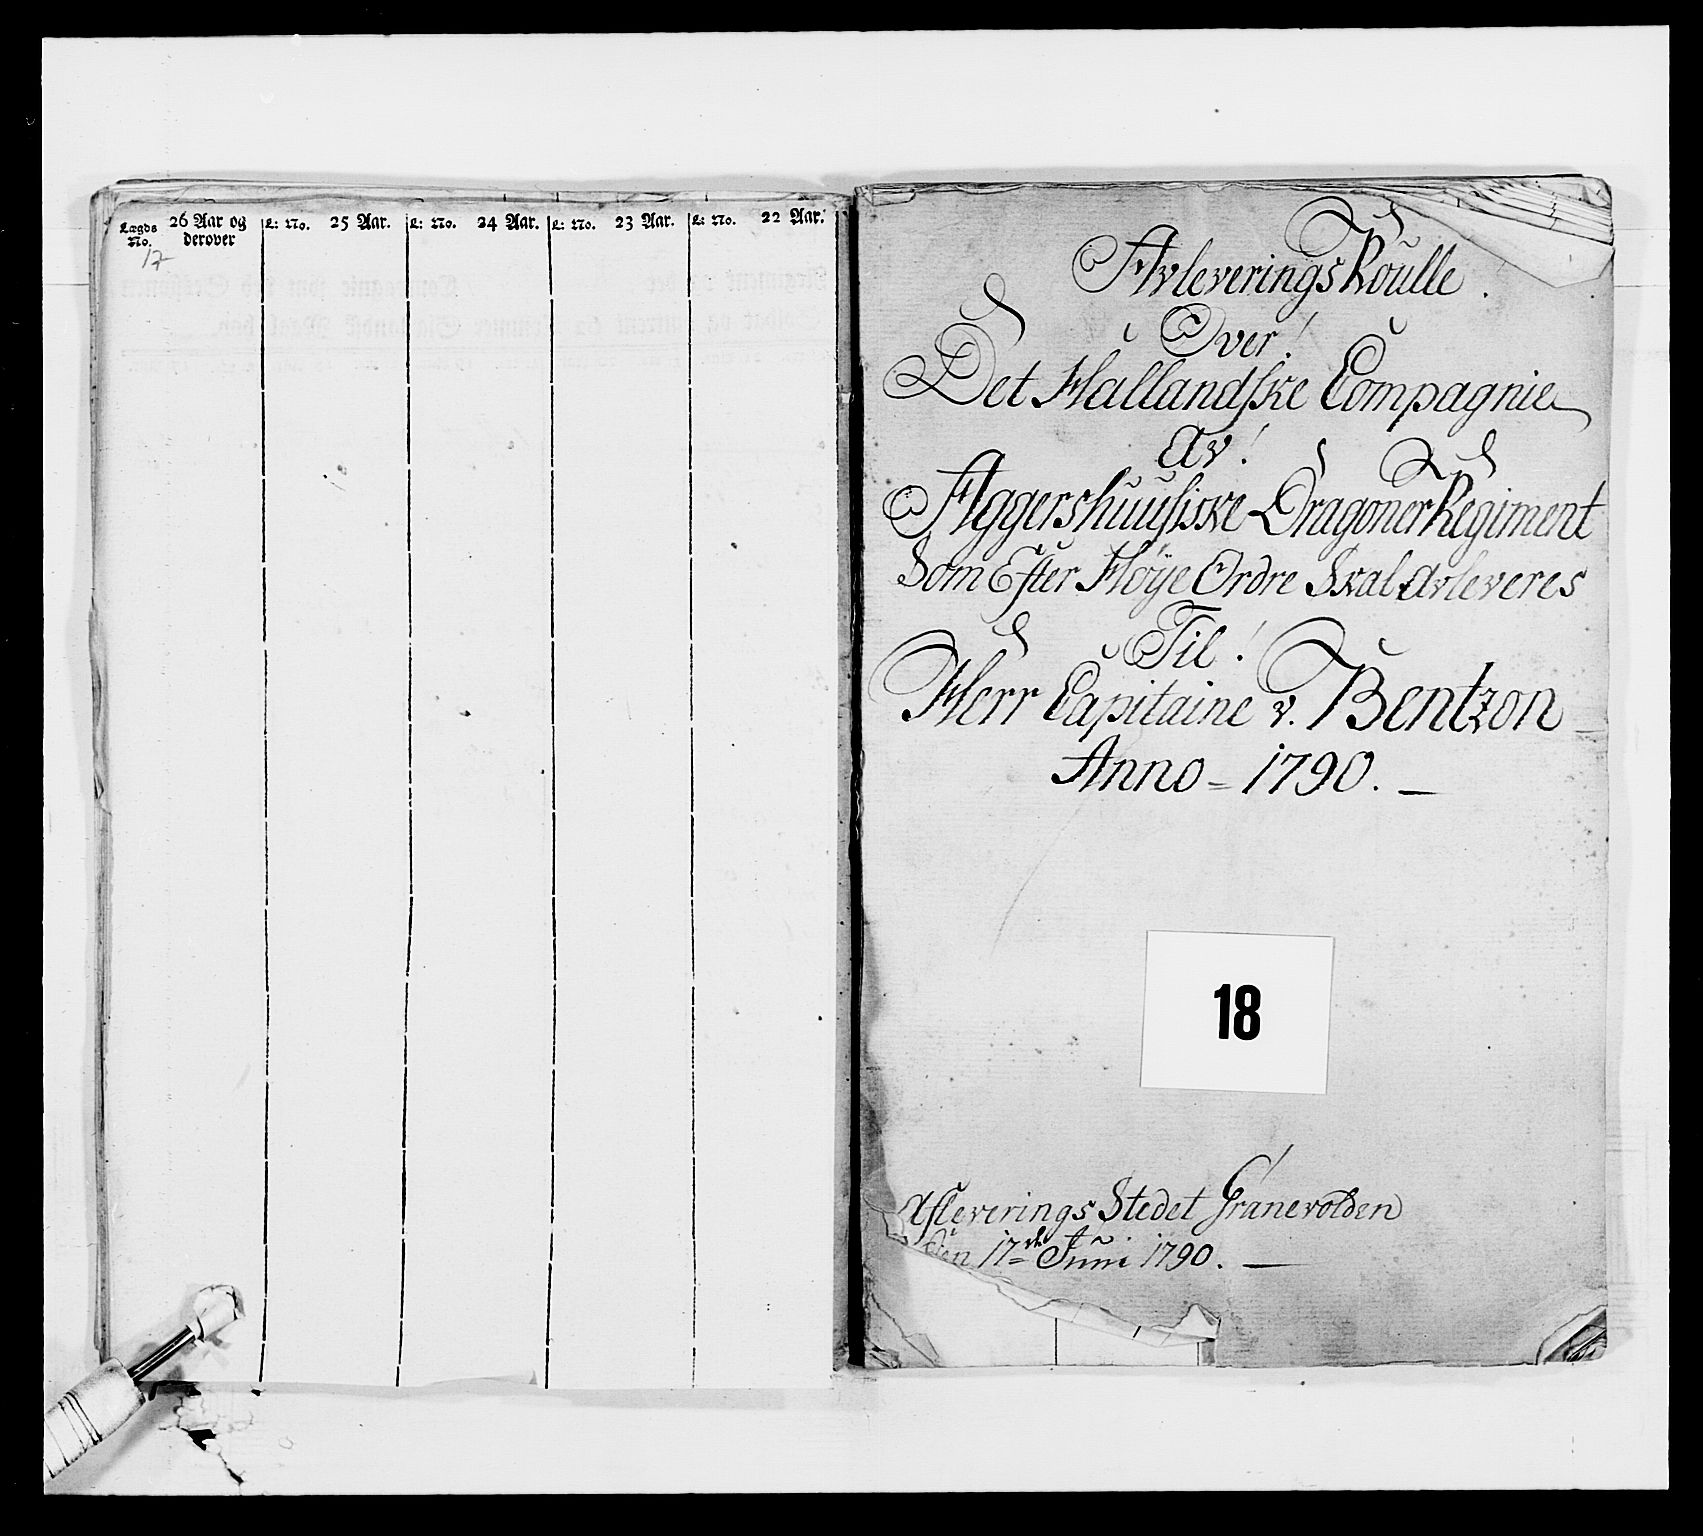 Lægds No. 26 Aar og derover L: No. 25 Aar. L: No. 24 Aar. L: No. 23 Aar. L: No. 22 Aar.
17
Avleverings Roulle
Over!
Det Hallandske Compagnie
Av!
Aggershuusiske Dragoner Regiment
Som Efter Høÿe Ordre Skal Avleveres
Til!
Herr Capitaine v. Bentzon
Anno = 1790. —
18
Afleverings Stedet Granevolden
den 17de Junii 1790. —